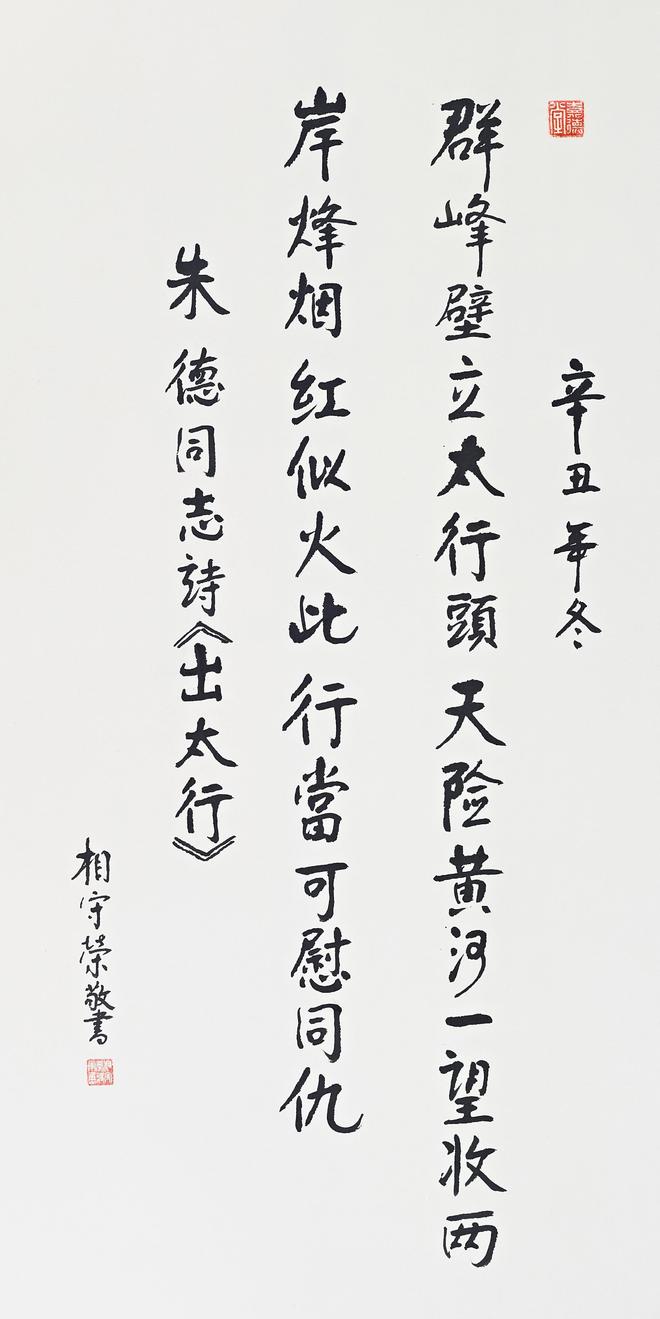 辛丑年冬
群峰壁立太行頭天险黄河一望收两
岸烽烟红似火此行當可慰同仇
朱德同志詩《出太行》
相守荣敬書